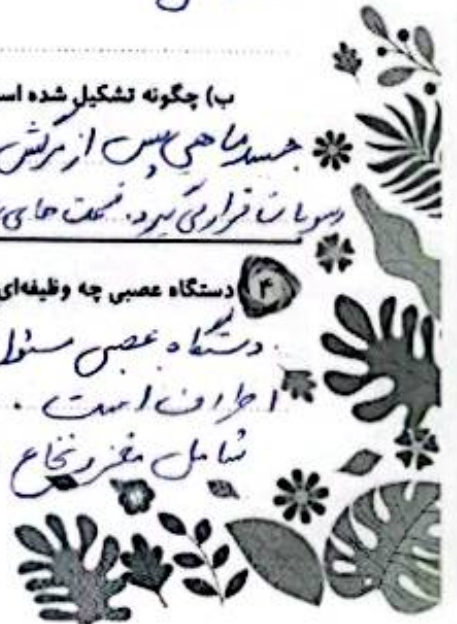 ب) چگونه تشکیل شده اس
جسد ماهی پس از مرگش
رسوبات قرار می گیرد. قسمت های
۴ دستگاه عصبی چه وظیفه‌ای
دستگاه عصبی مسئول
اطراف است.
شامل مغز و نخاع